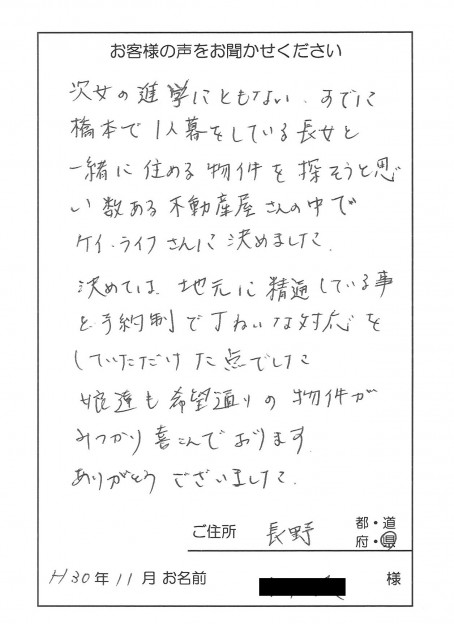 お客様の声をお聞かせください
次女の進学にともない、すでに
橋本で1人暮をしている長女と
一緒に住める物件を探そうと思
い数ある不動産屋さんの中で
ケイ・ライフさんに決めました。
決めては、地元に精通している事
と予約制で丁ねいな対応を
していただけた点でした
娘達も希望通りの物件が
みつかり喜こんでおります。
ありがとうございました。
ご住所 長野 都・道
府・県
H30年11月 お名前 様